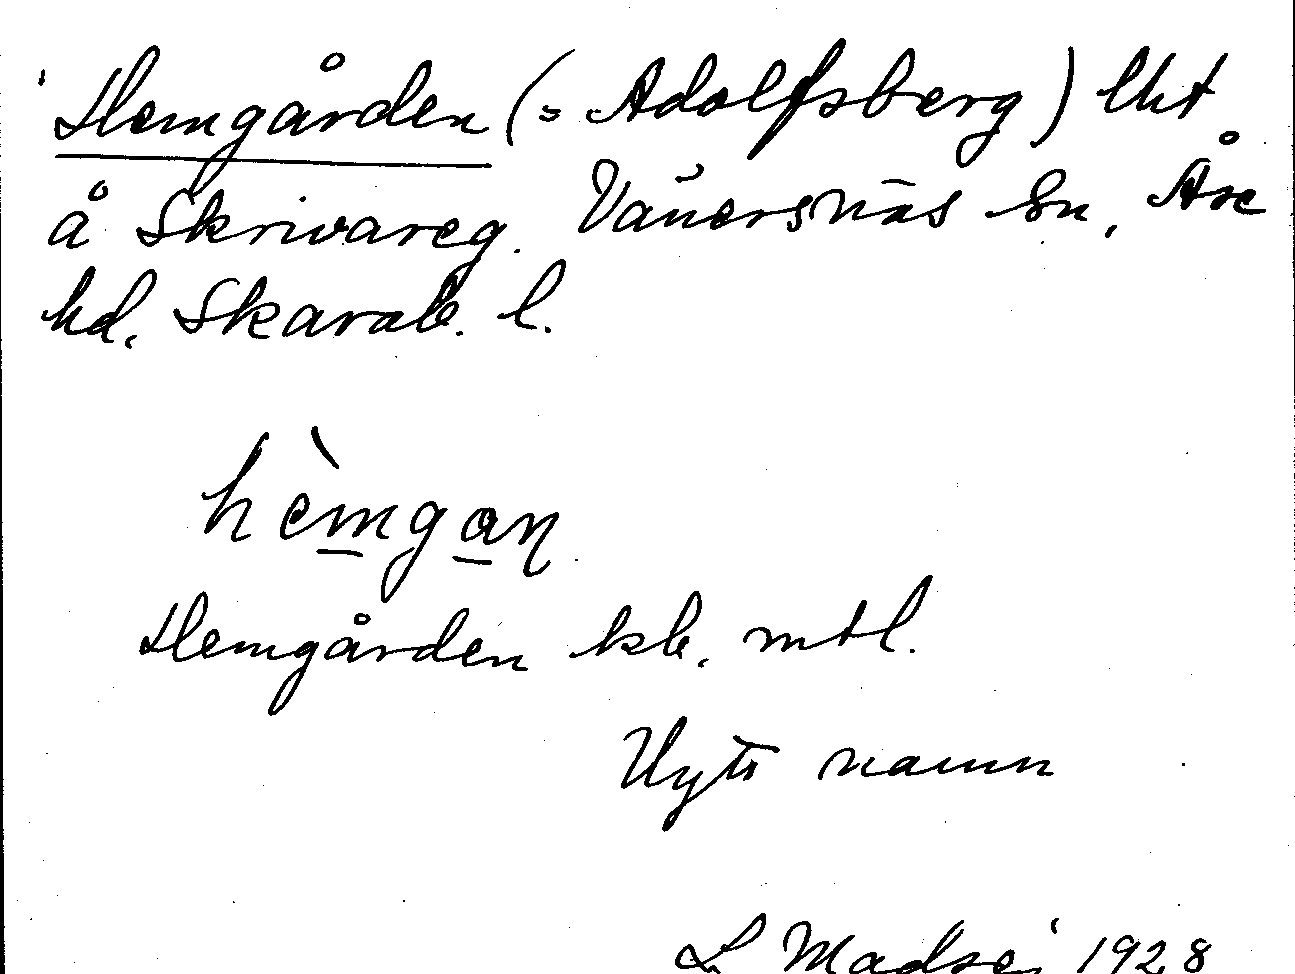 Hemgården (= Adolfsberg) lht
å Skrivareg. Vänersnäs sn, Åse
hd. Skarab. l.
hèmgaɳ
Hemgården kb. mtl.
Nytt namn
L Madsé 1928